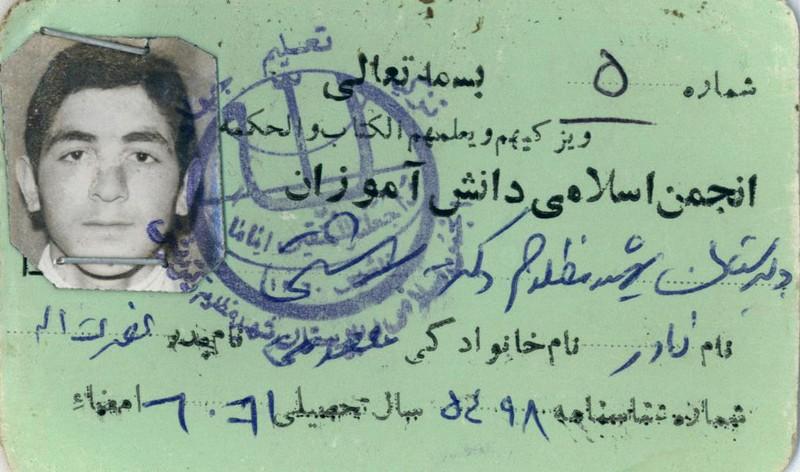 بسمه تعالی
شماره ۵
ویزکیهم ویعلمهم الکتاب والحکمه
انجمن اسلامی دانش آموزان
دبیرستان شهید مظلوم دکتر بهشتی
نام نادر نام خانوادگی نام پدر نصرت اله
شماره شناسنامه ۵۴۹۸ سال تحصیلی ۶۱-۶۰ امضاء
تعلیم